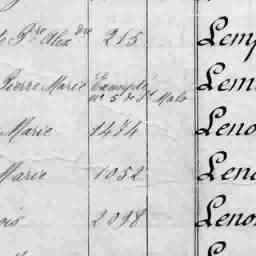 Pre Alexdre 215 Lemp
Pierre Marie Exempté Lem
no 5 de St Malo
Marie 1474 Leno
Marie 1052 Len
ois 2098 Leno